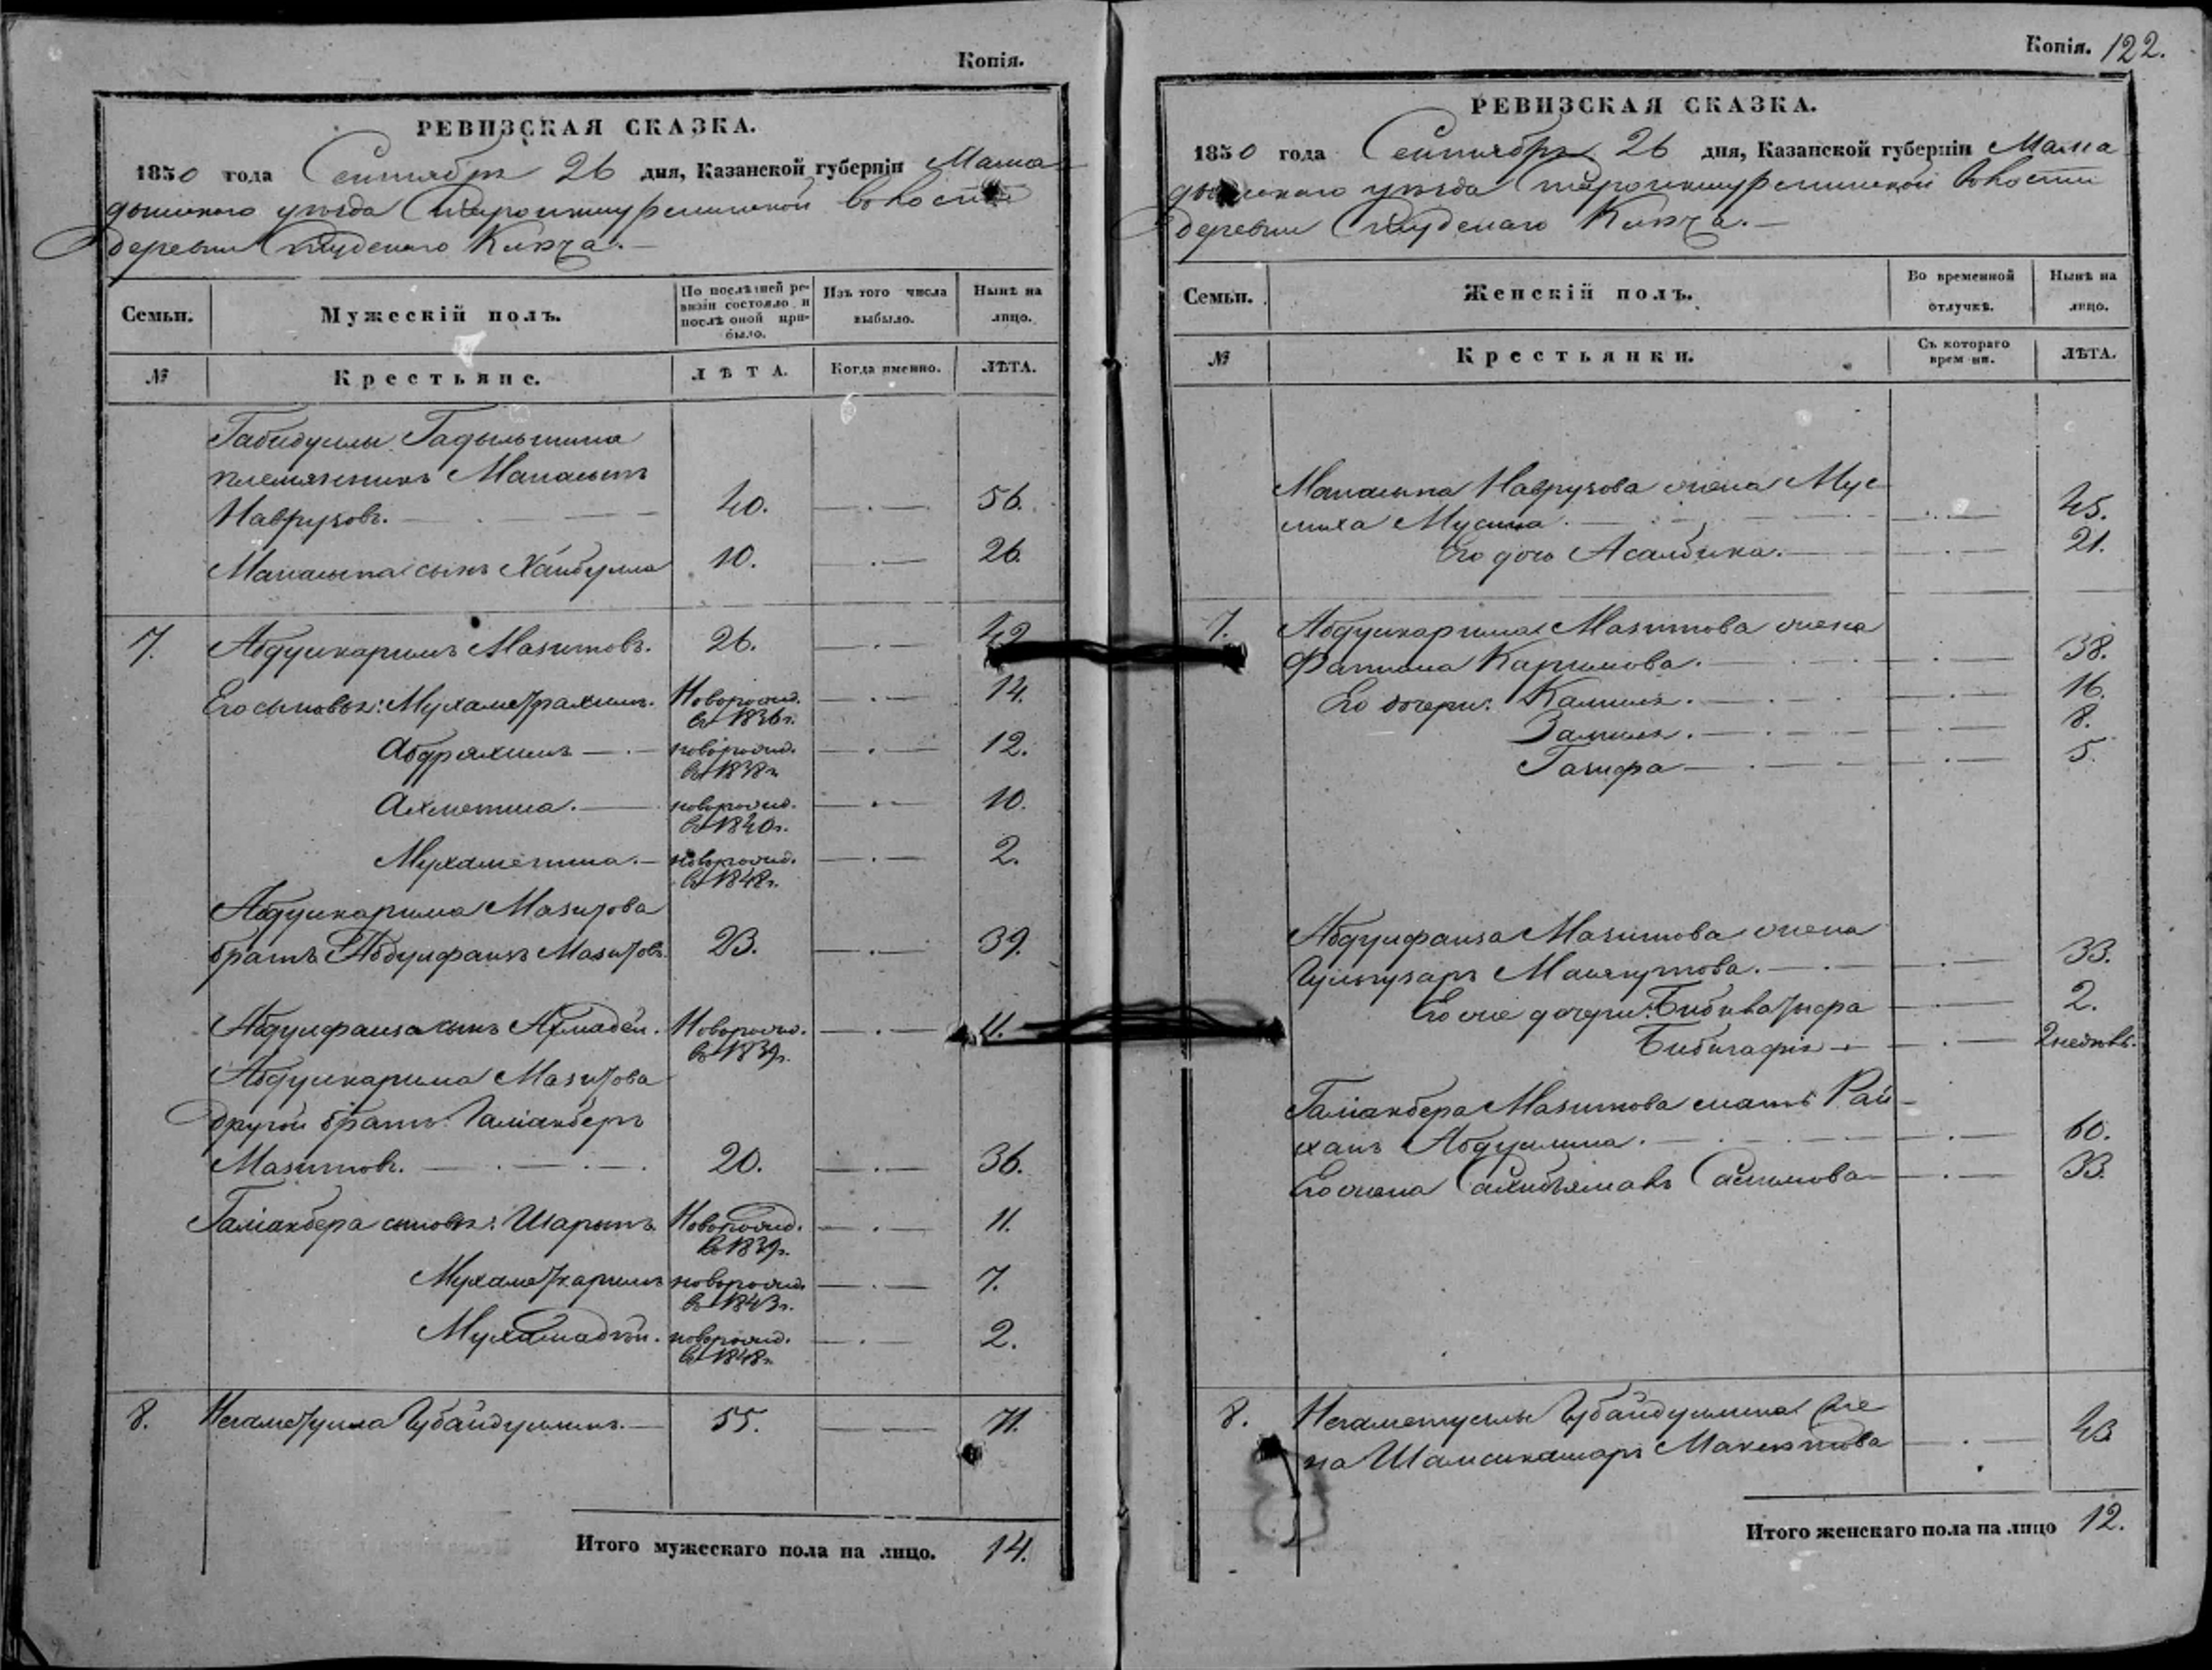 Копія.
РЕВИЗСКАЯ СКАЗКА.
1850 года Сентября 26 дня, Казанской губерніи Мама
дышскаго уѣзда Старопкшурминской волости
деревни Студенаго Ключа.
Семьи.
Мужескій полъ.
По послѣдней ре-
визіи состояло и
послѣ оной при-
было.
Изъ того числа
выбыло.
Нынѣ на
лицо.
№
Крестьяне.
ЛѢТА.
Когда именно.
ЛѢТА.
Габидуллы Гадыльшина
племянникъ Манасыпъ
Наврузовъ. 40. 56.
Манасыпа сынъ Хайбулла 10. 26.
7. Абдулкаримъ Мазитовъ. 26. 42
Его сыновья: Мухаметрахимъ. Новорожд. 14.
въ 1836 г.
Абдрахимъ новорожд. 12.
въ 1838 г.
Ахметша. новорожд. 10.
въ 1840 г.
Мухаметша. новорожд. 2.
въ 1848 г.
Абдулкарима Мазитова
братъ Абдулфаизъ Мазитовъ. 23. 39.
Абдулфаиза сынъ Ахмадей. Новорожд. 11.
въ 1839 г.
Абдулкарима Мазитова
другой братъ Галіакберъ
Мазитовъ. 20. 36.
Галіакбера сыновья: Шарыпъ Новорожд. 11.
въ 1839 г.
Мухаметкаримъ новорожд. 7.
въ 1843 г.
Мухамадѣй. новорожд. 2.
въ 1848 г.
8. Негаметулла Губайдуллинъ. 55. 71.
Итого мужескаго пола на лицо. 14.
Копія. 122.
РЕВИЗСКАЯ СКАЗКА.
1850 года Сентября 26 дня, Казанской губерніи Мама
дышскаго уѣзда Старопкшурминской волости
деревни Студенаго Ключа.
Семьи.
Женскій полъ.
Во временной
отлучкѣ.
Нынѣ на
лицо.
№
Крестьянки.
Съ котораго
времени.
ЛѢТА.
Манасыпа Наврузова жена Мус
лиха Мусина. 45.
Его дочь Асалбика. 21.
7. Абдулкарима Мазитова жена
Фатима Каримова. 38.
Его дочери: Камиля. 16.
Замиля. 8.
Газифа 5.
Абдулфаиза Мазитова жена
Гульгузаръ Маликутова. 33.
Его же дочери: Бибиватыфа 2.
Бибисафія 2 недѣль.
Галіакбера Мазитова мать Рай
ханъ Абдулина. 60.
Его жена Сахибъямалъ Салимова 33.
8. Негаметуллы Губайдуллина же
на Шамсикамаръ 43
Итого женскаго пола на лицо 12.